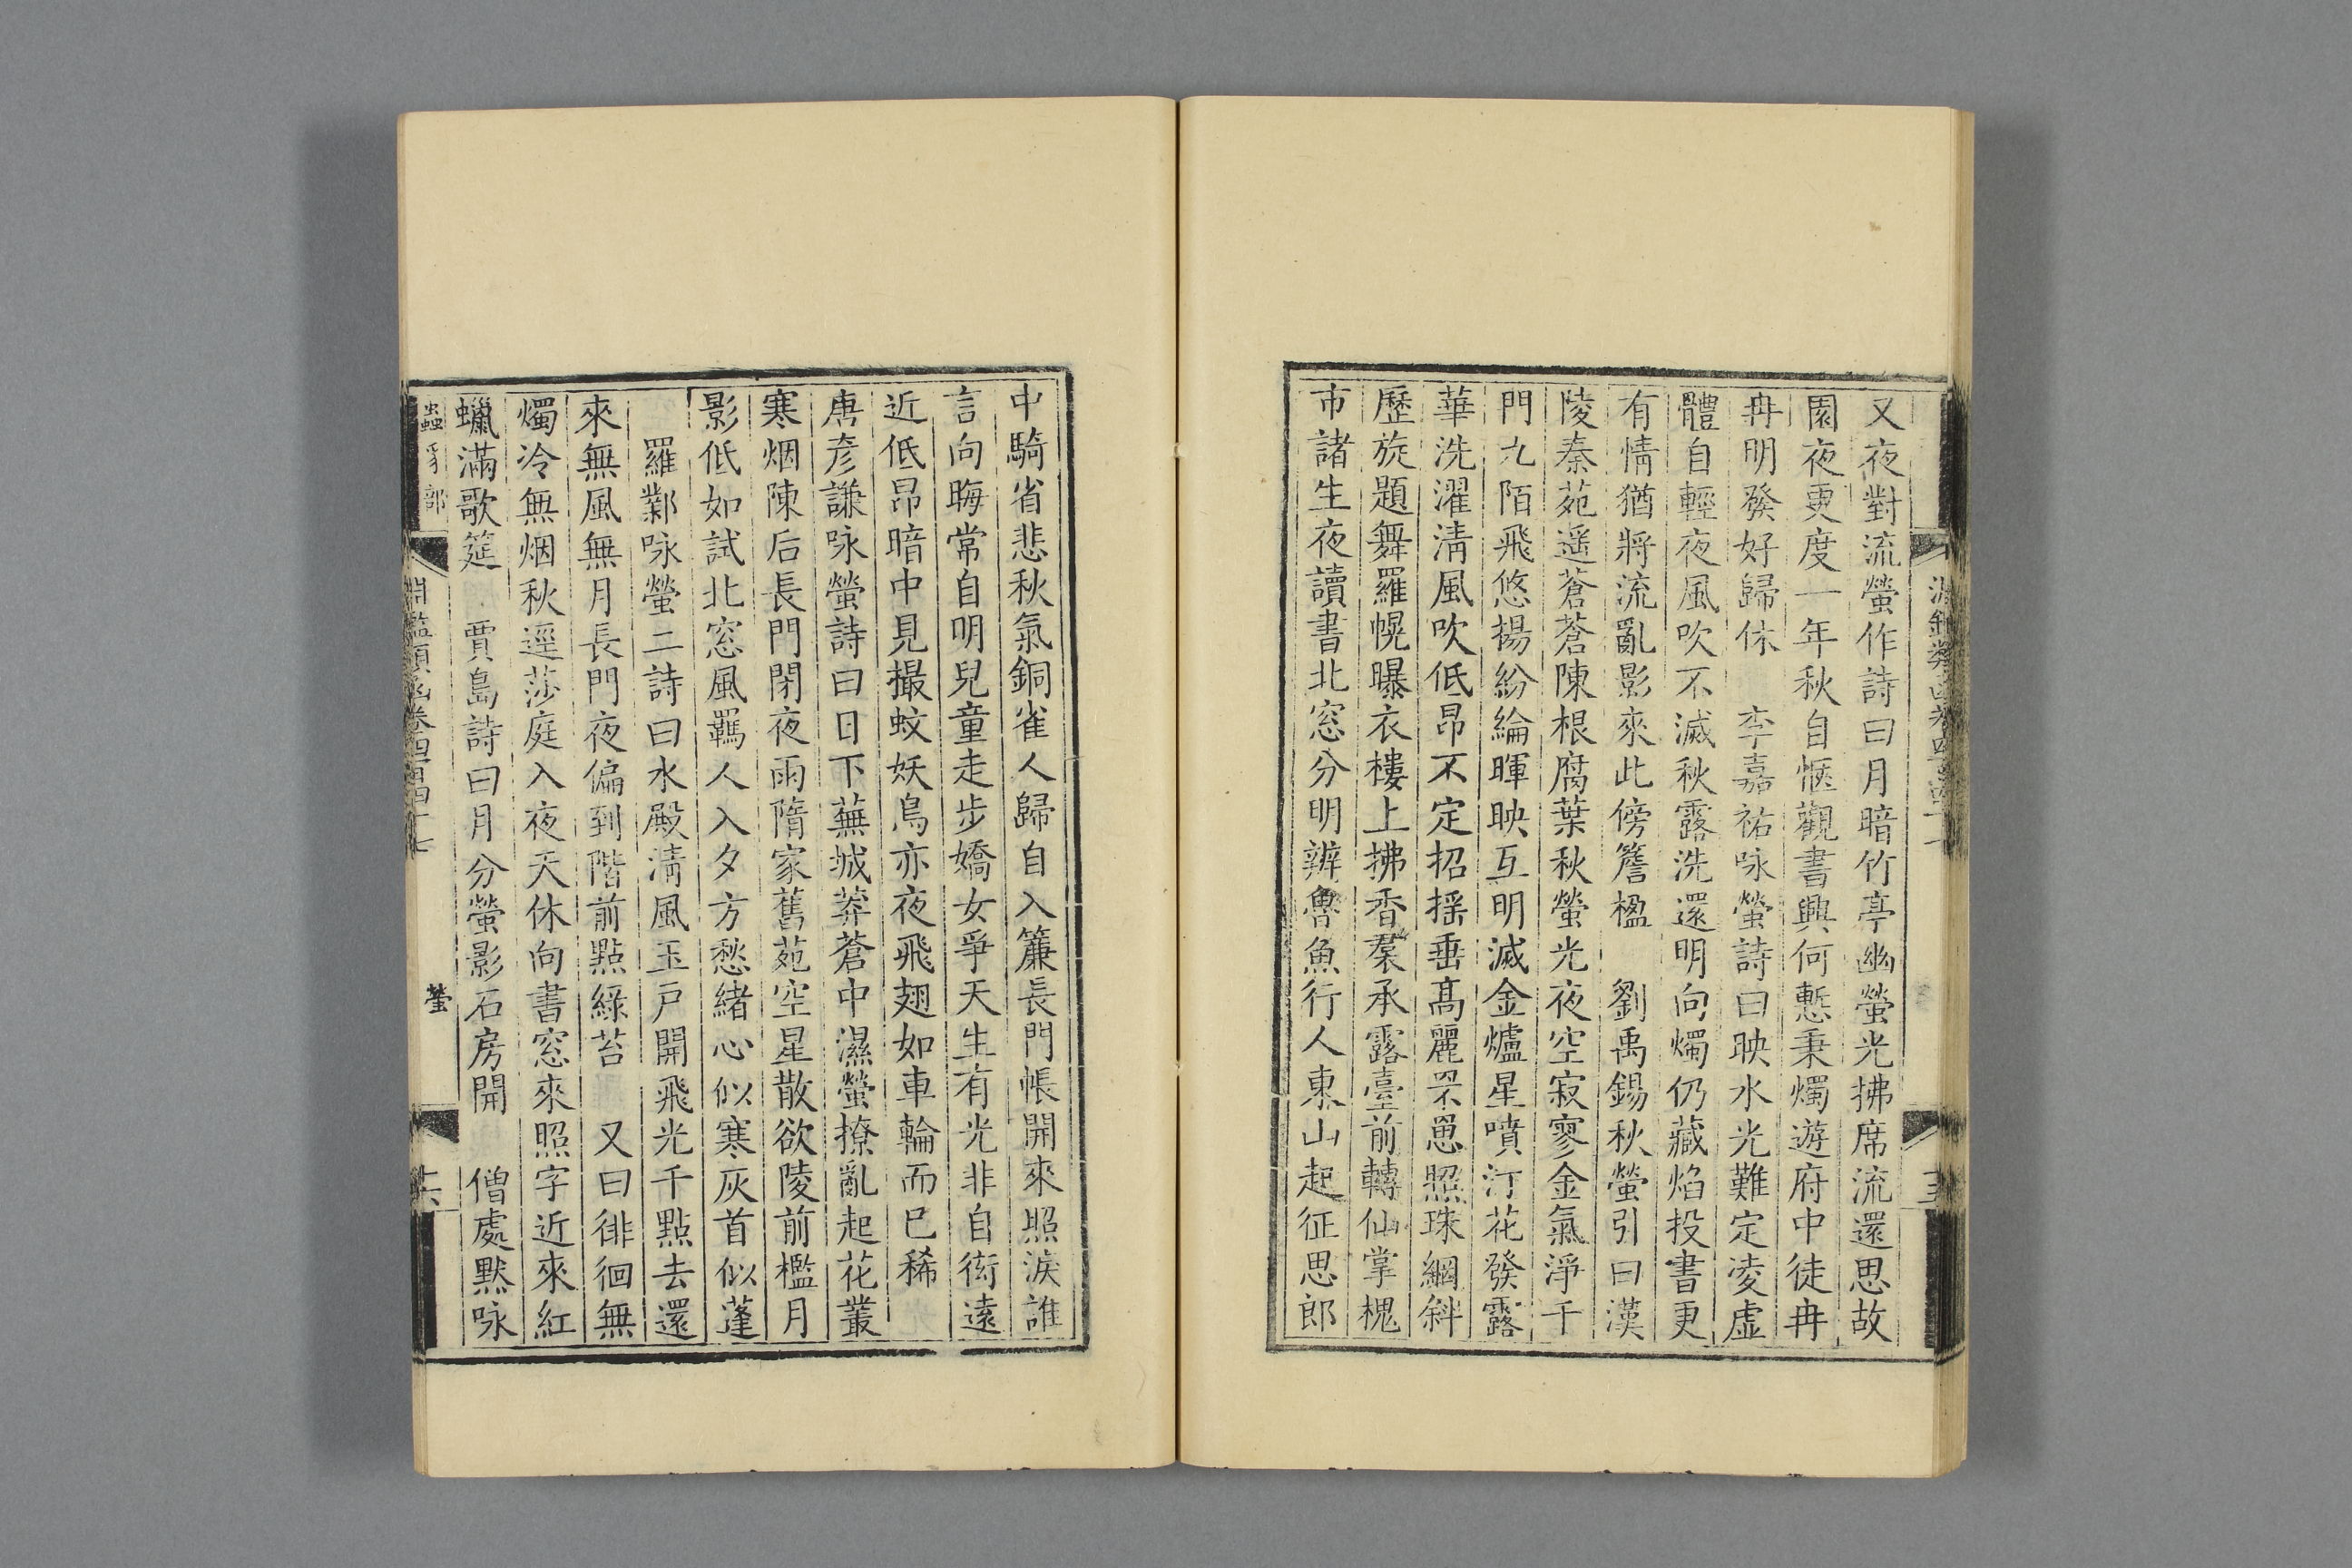 又夜對流螢作詩曰月暗竹亭幽螢光拂席流還思故
園夜更度一年秋自愜觀書興何慙秉燭遊府中徒冉
冉明發好歸休　李嘉祐咏螢詩曰映水光難定凌虛
體自輕夜風吹不滅秋露洗還明向燭仍藏焰投書更
有情猶將流亂影來此傍簷楹　劉禹錫秋螢引曰漢
陵秦苑遥蒼蒼陳根腐葉秋螢光夜空寂寥金氣淨千
門九陌飛悠揚紛綸暉映互明滅金爐星噴汀花發露
華洗濯清風吹低昂不定招揺垂高麗罘罳照珠網斜
歷旋題舞羅幌曝衣樓上拂香裙承露臺前轉仙掌槐
市諸生夜讀書北窓分明辨魯魚行人東山起征思郎
中騎省悲秋氣銅雀人歸自入簾長門帳開來照淚誰
言向晦常自明兒童走步嬌女爭天生有光非自衒遠
近低昂暗中見撮蚊妖鳥亦夜飛翅如車輪而已稀
唐彦謙咏螢詩曰日下蕪城莽蒼中濕螢撩亂起花叢
寒烟陳后長門閉夜雨隋家舊苑空星散欲陵前檻月
影低如試北窓風羈人入夕方愁緒心似寒灰首似蓬
羅鄴咏螢二詩曰水殿清風玉戸開飛光千點去還
來無風無月長門夜偏到階前點綠苔　又曰徘徊無
燭冷無烟秋逕莎庭入夜天休向書窓來照字近來紅
蠟滿歌筵　賈島詩曰月分螢影石房開　僧處默咏
蟲豸部
淵鑑類函卷四百四十七
螢
十六